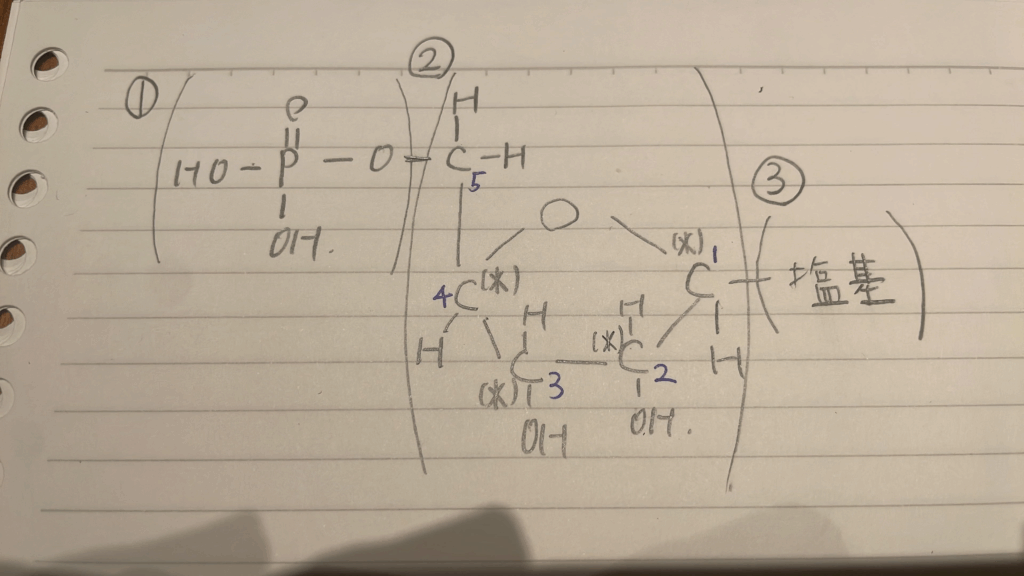 ②
①
H
O
HO-P-O-C-H
5
③
OH.
O
(*) 1
4 C (*) C - 塩基
H H H
(*)
H C 3 C 2 H
(*)
OH OH.